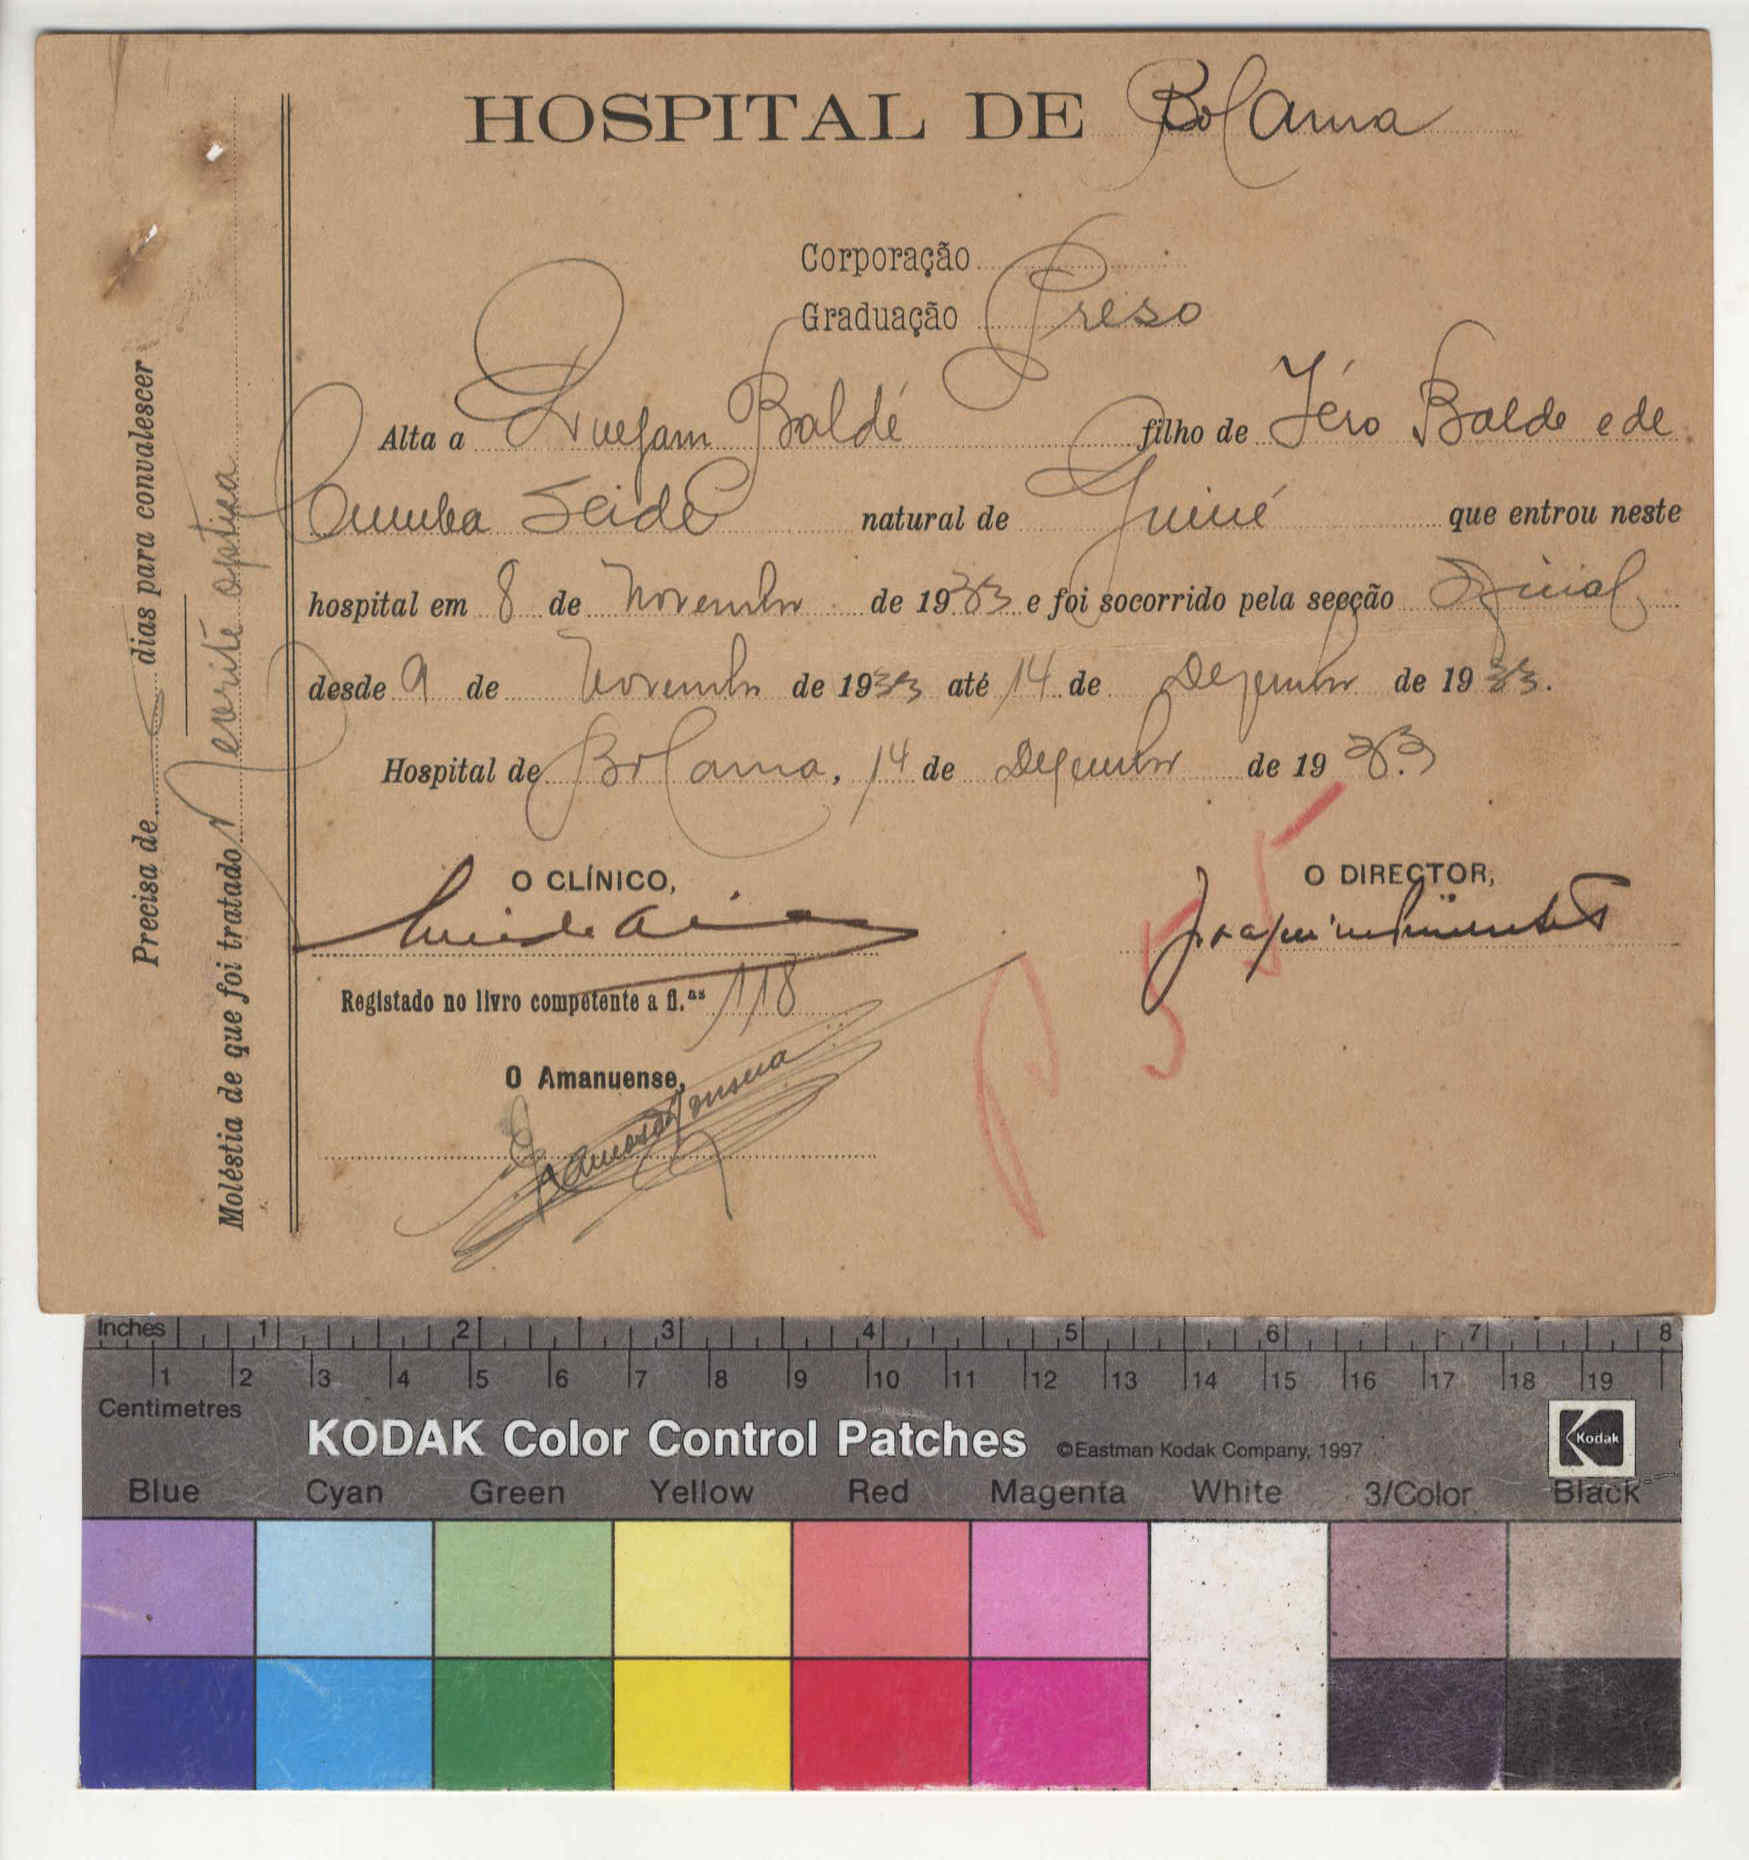 HOSPITAL DE Bolama
Corporação
Graduação Preso
Alta a Baldé filho de Jéro Balde e de
Cumba Seide natural de Guiné que entrou neste
hospital em 8 de Novembro de 1933 e foi socorrido pela secção
desde 9 de Novembro de 1933 até 14 de Dezembro de 1933.
Hospital de Bolama, 14 de Dezembro de 1933
O CLÍNICO,
O DIRECTOR,
Joaquim Pimenta
Registado no livro competente a fl.ᵃˢ 118
O Amanuense,
Fonseca
Precisa de dias para convalescer
Moléstia de que foi tratado Nevrite optica
55
Inches 1 2 3 4 5 6 7 8
1 2 3 4 5 6 7 8 9 10 11 12 13 14 15 16 17 18 19
Centimetres
KODAK Color Control Patches ©Eastman Kodak Company, 1997 Kodak
Blue Cyan Green Yellow Red Magenta White 3/Color Black